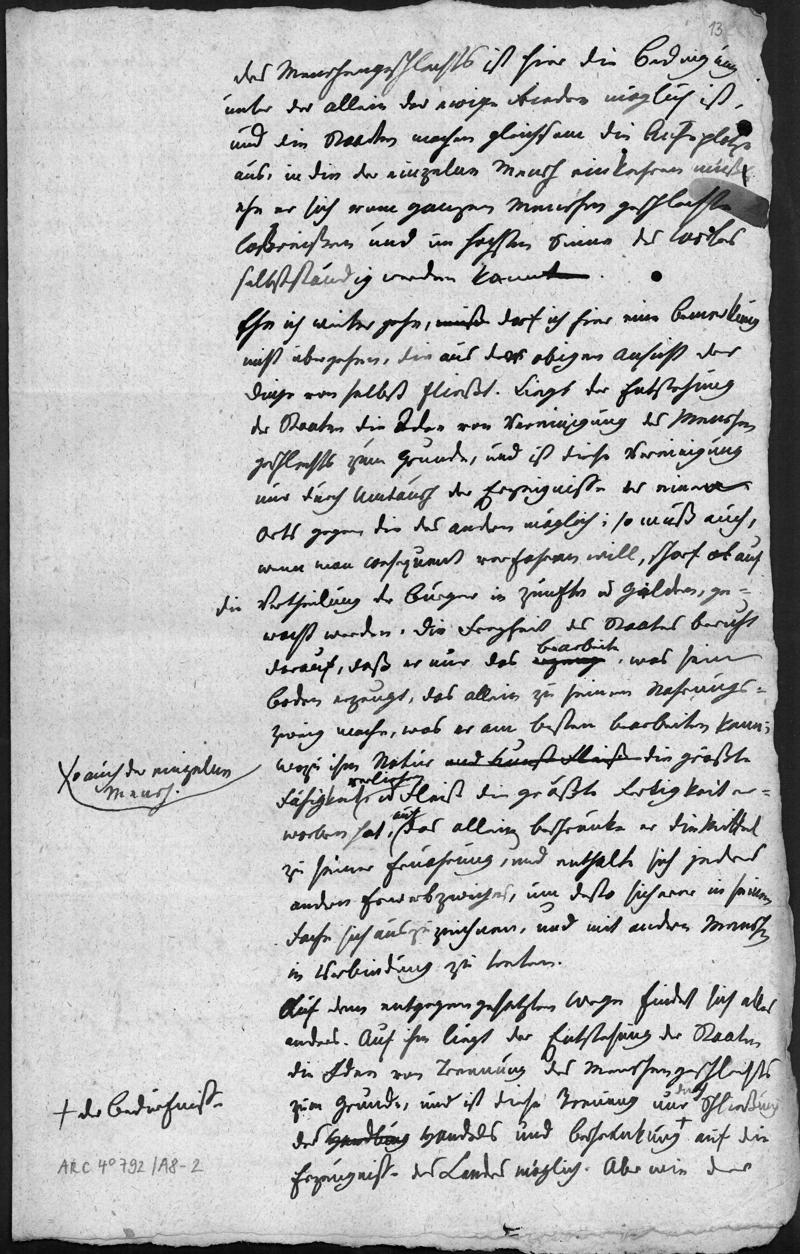 13
des Menschengeschlechts ist hier die Bedingung
unter der allein der ewige Frieden möglich ist,
und die Staaten machen gleichsam die Ruheplätze
aus, in die der einzelne Mensch einkehren muß
ehe er sich vom ganzen Menschengeschlechte
losreißen und im höchsten Sinne des Wortes
selbstständig werden kann.
Ehe ich weiter gehe, muß darf ich hier eine Bemerkung
nicht übergehen, die aus der obigen Ansicht der
Dinge von selbst fließt. Liegt der Entstehung
der Staaten die Idee von Vereinigung des Menschen
geschlechts zum Grunde, und ist diese Vereinigung
nur durch Umtausch der Erzeugnisse des einen
Orts gegen die des andern möglich; so muß auch,
wenn man consequent verfahren will, scharf auf
die Vertheilung der Bürger in Zünfte u Gilden, ge=
wacht werden. Die Freyheit des Staates beruht
darauf, daß er nur das bearbeite, was sein
Boden erzeugt, das allein zu seinem Nahrungs=
zweig mache, was er am besten bearbeiten kann;
so auch der einzelne
Mensch.
wozu ihm Natur und Kunst Fleiß die größte
Fähigkeit verliehen u Fleiß die größte Fertigkeit er=
worben hat, auf das allein beschränke er die Mittel
zu seiner Ernährung, und enthalte sich jedes
andern Erwerbzweiges, um desto sicherer in seinem
Fache sich auszuzeichnen, und mit andern Menschen
in Verbindung zu treten.
Auf dem entgegengesetzten Wege findet sich alles
anders. Auf ihm liegt der Entstehung der Staaten
die Idee von Trennung des Menschengeschlechts
zum Grunde, und ist diese Trennung nur durch Schließung
+ der Bedürfnisse
des Handlung Handels und Beschränkung + auf die
Erzeugnisse des Landes möglich. Aber wie der
ARC 4° 792 / A8-2